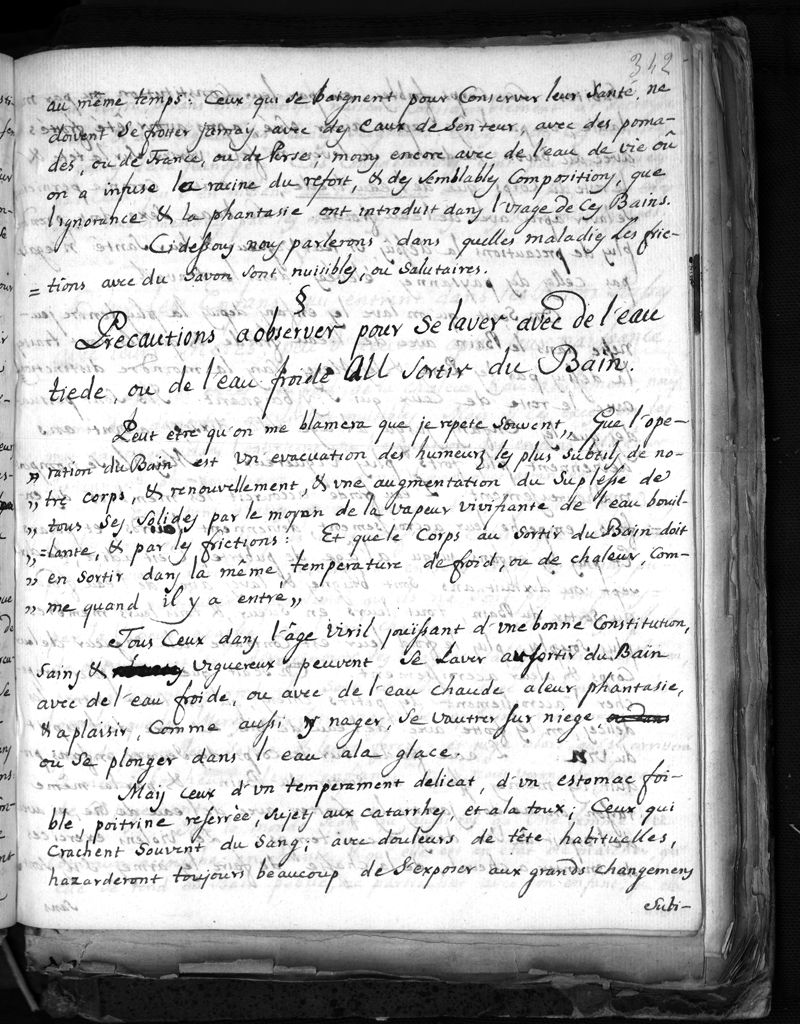 342
au même temps: Ceux qui se baignent pour Conserver leur Santé, ne
doivent Se froter jamay avec des Eaux de Senteur, avec des poma-
des, ou de France, ou de Perse; moins encore avec de l'eau de vie où
on a infuse la racine du refort, & des semblables Compositions, que
l'ignorance & la phantasie ont introduit dans l'usage de Ces Bains.
Cidessous nous parlerons dans quelles maladies Les fric-
= tions avec du Savon sont nuisibles, ou Salutaires.
§
Precautions aobserver pour Se laver avec de l'eau
tiede ou de l'eau froide All sortir du Bain.
Peut etre qu'on me blamera que je repete Souvent,, Que l'ope-
,, ration du Bain est Un evacuation des humeurs les plus subtils de no-
,, tre corps, & renouvellement, & vne augmentation du Suplesse de
,, tous Ses Solides par le moyan de la vapeur vivifiante de l'eau bouil-
,, =lante, & par les frictions: Et que le Corps au Sortir du Bain doit
,, en sortir dans la même temperature de froid, ou de chaleur, Com-
,, me quand il y a entré,,
Tous Ceux dans l'âge Viril jouissant d'vne bonne Constitution,
Sains & Viguereux peuvent Se Laver au sortir du Bain
avec de l'eau froide, ou avec de l'eau chaude aleur phantasie,
& aplaisir, Comme aussi y nager, Se vautrer sur niege
ou Se plonger dans l'eau ala glace.
Mais Ceux d'vn temperament delicat, d'vn estomac foi-
ble, poitrine reserrée, Sujets aux catarrhes, et ala toux; Ceux qui
Crachent Souvent du Sang; avec douleurs de tête habituelles,
hazarderont toujours beaucoup de S'exposer aux grands changemens
Subi-